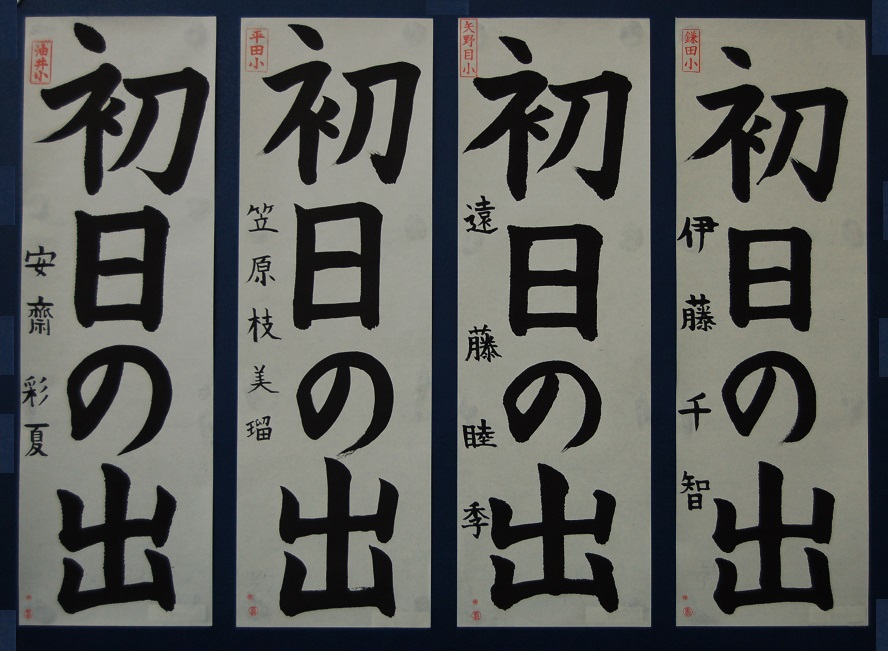 鎌田小
初日の出
伊藤千智
矢野目小
初日の出
遠藤睦季
平田小
初日の出
笠原枝美瑠
油井小
初日の出
安齋彩夏